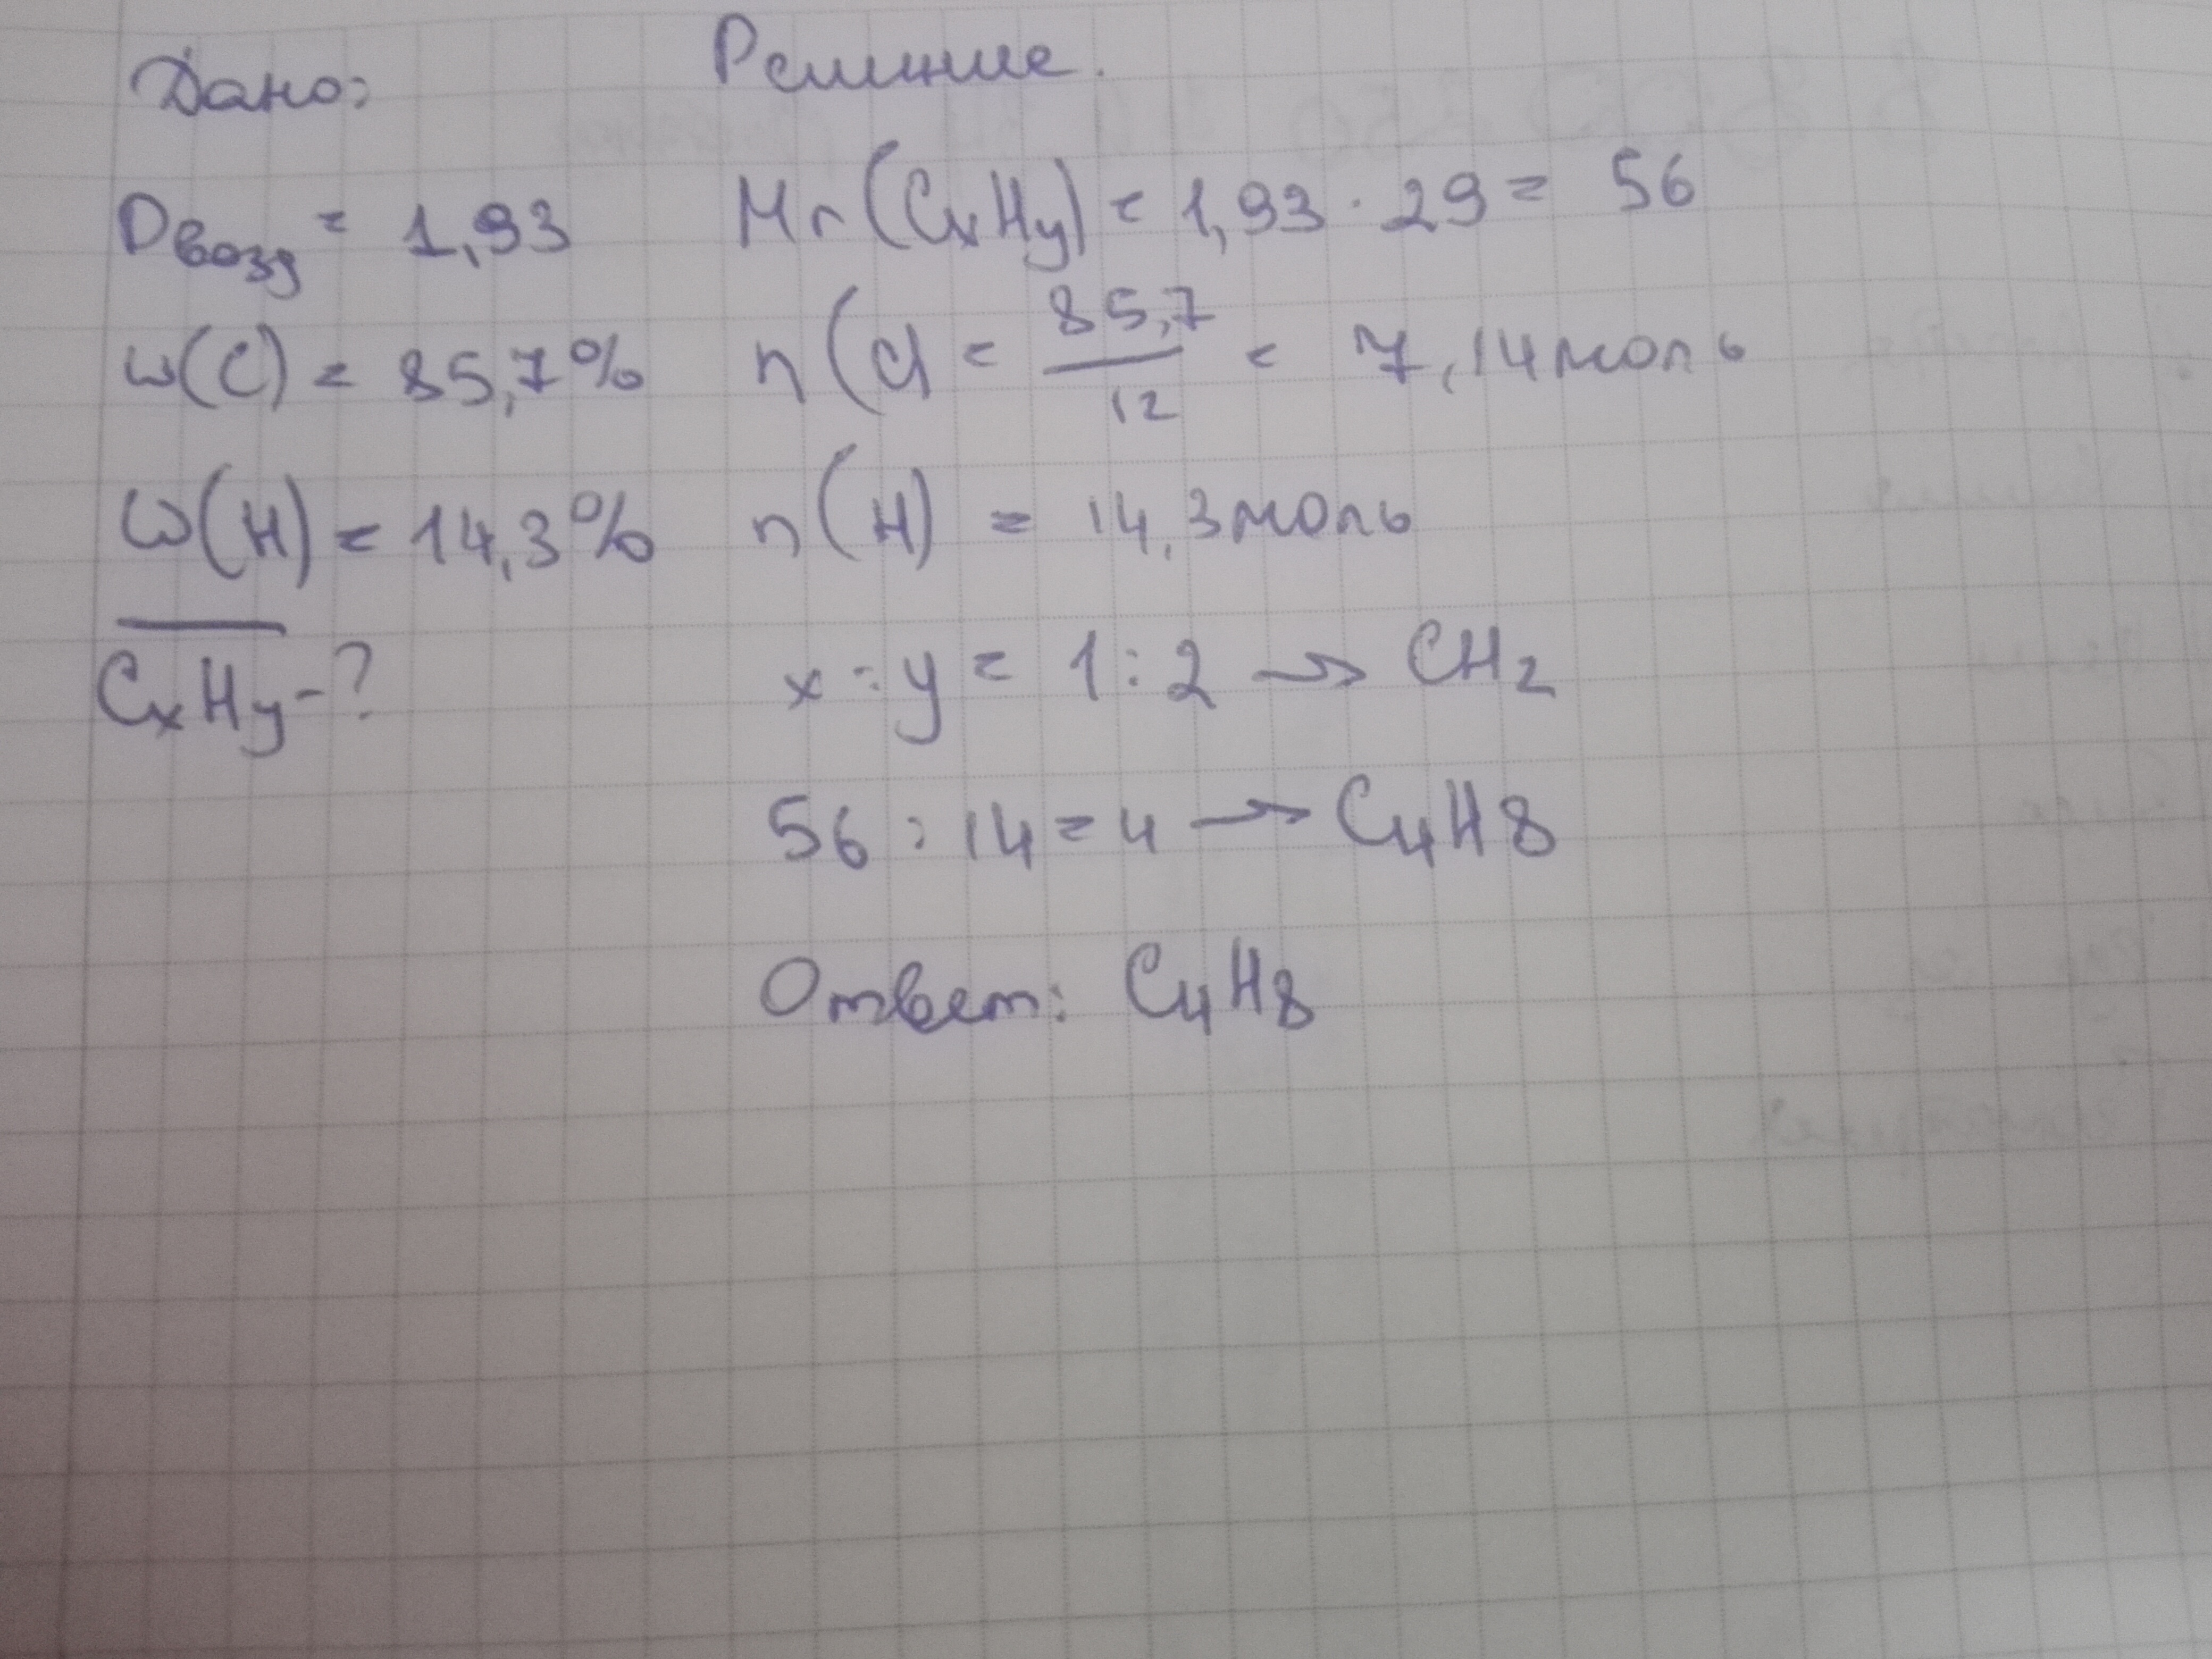 Дано:
Dвозд = 1,93
w(C) = 85,7%
w(H) = 14,3%
CxHy - ?
Решение.
Mr(CxHy) = 1,93 · 29 = 56
n(C) = 85,7/12 = 7,14моль
n(H) = 14,3моль
x : y = 1 : 2 → CH2
56 : 14 = 4 → C4H8
Ответ: C4H8